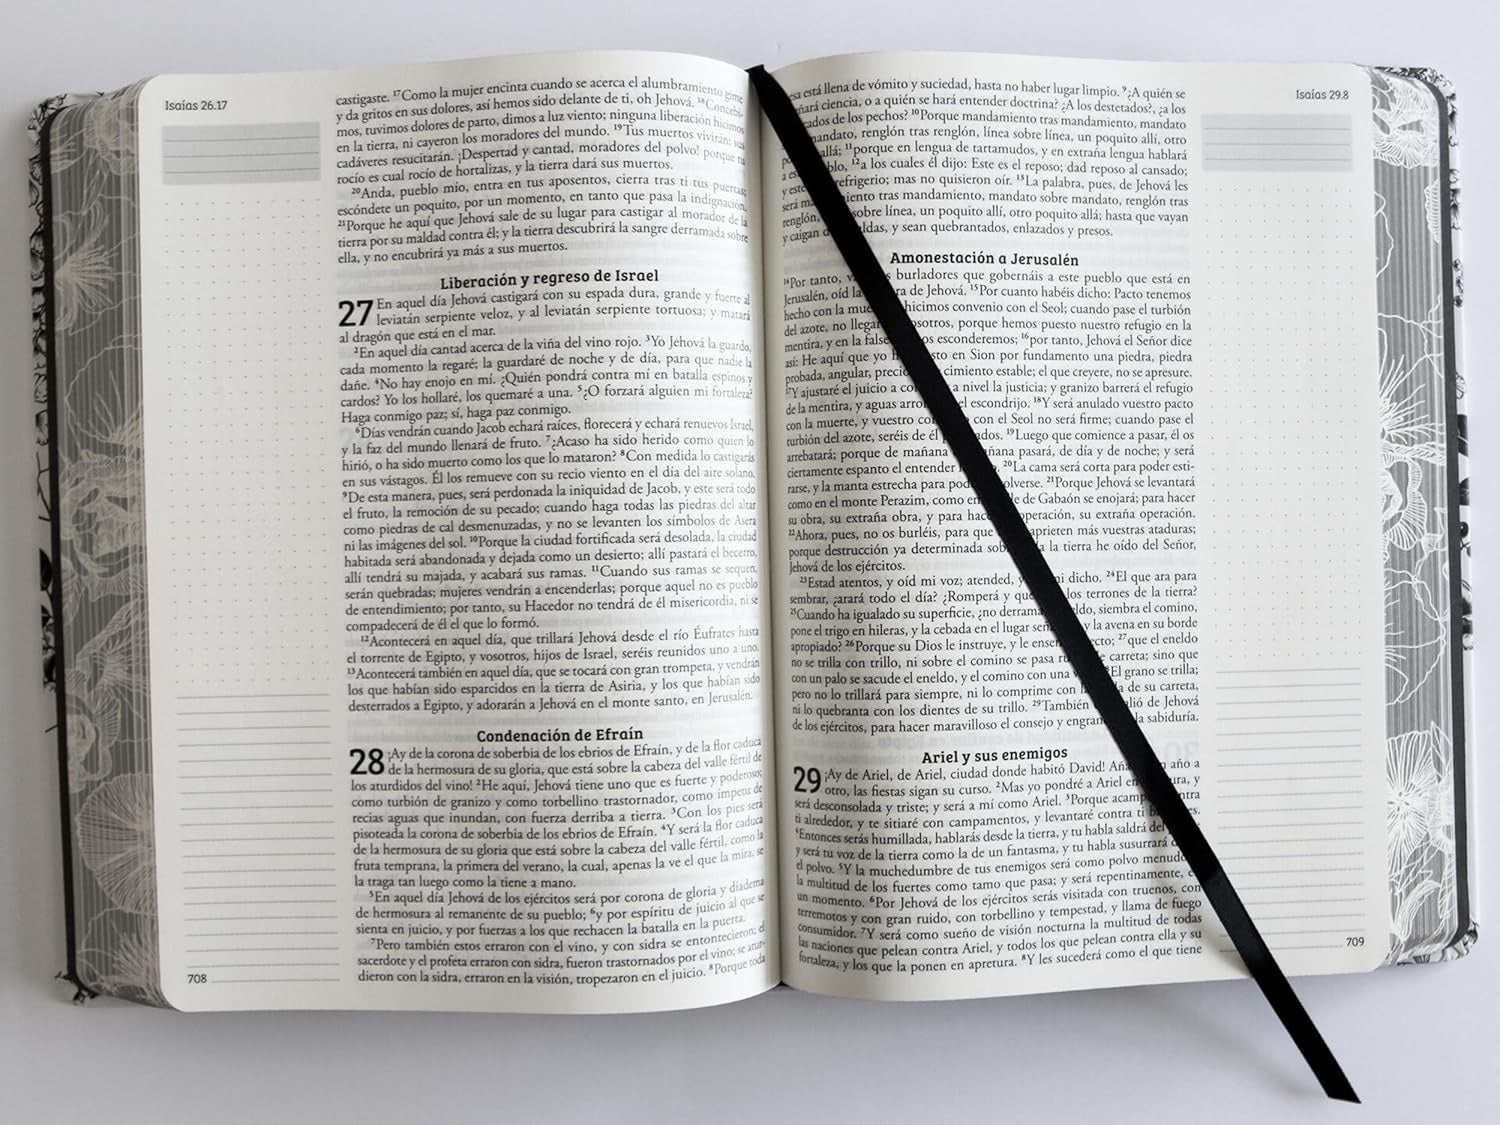 Isaías 26.17
castigaste. 17Como la mujer encinta cuando se acerca el alumbramiento gime
y da gritos en sus dolores, así hemos sido delante de ti, oh Jehová. 18Concebi-
mos, tuvimos dolores de parto, dimos a luz viento; ninguna liberación hicimos
en la tierra, ni cayeron los moradores del mundo. 19Tus muertos vivirán; sus
cadáveres resucitarán. ¡Despertad y cantad, moradores del polvo! porque tu
rocío es cual rocío de hortalizas, y la tierra dará sus muertos.
20Anda, pueblo mío, entra en tus aposentos, cierra tras ti tus puertas;
escóndete un poquito, por un momento, en tanto que pasa la indignación.
21Porque he aquí que Jehová sale de su lugar para castigar al morador de la
tierra por su maldad contra él; y la tierra descubrirá la sangre derramada sobre
ella, y no encubrirá ya más a sus muertos.
Liberación y regreso de Israel
27 En aquel día Jehová castigará con su espada dura, grande y fuerte al
leviatán serpiente veloz, y al leviatán serpiente tortuosa; y matará
al dragón que está en el mar.
2En aquel día cantad acerca de la viña del vino rojo. 3Yo Jehová la guardo,
cada momento la regaré; la guardaré de noche y de día, para que nadie la
dañe. 4No hay enojo en mí. ¿Quién pondrá contra mí en batalla espinos y
cardos? Yo los hollaré, los quemaré a una. 5¿O forzará alguien mi fortaleza?
Haga conmigo paz; sí, haga paz conmigo.
6Días vendrán cuando Jacob echará raíces, florecerá y echará renuevos Israel,
y la faz del mundo llenará de fruto. 7¿Acaso ha sido herido como quien lo
hirió, o ha sido muerto como los que lo mataron? 8Con medida lo castigarás
en sus vástagos. Él los remueve con su recio viento en el día del aire solano.
9De esta manera, pues, será perdonada la iniquidad de Jacob, y este será todo
el fruto, la remoción de su pecado; cuando haga todas las piedras del altar
como piedras de cal desmenuzadas, y no se levanten los símbolos de Asera
ni las imágenes del sol. 10Porque la ciudad fortificada será desolada, la ciudad
habitada será abandonada y dejada como un desierto; allí pastará el becerro,
allí tendrá su majada, y acabará sus ramas. 11Cuando sus ramas se sequen,
serán quebradas; mujeres vendrán a encenderlas; porque aquel no es pueblo
de entendimiento; por tanto, su Hacedor no tendrá de él misericordia, ni se
compadecerá de él el que lo formó.
12Acontecerá en aquel día, que trillará Jehová desde el río Éufrates hasta
el torrente de Egipto, y vosotros, hijos de Israel, seréis reunidos uno a uno.
13Acontecerá también en aquel día, que se tocará con gran trompeta, y vendrán
los que habían sido esparcidos en la tierra de Asiria, y los que habían sido
desterrados a Egipto, y adorarán a Jehová en el monte santo, en Jerusalén.
Condenación de Efraín
28 ¡Ay de la corona de soberbia de los ebrios de Efraín, y de la flor caduca
de la hermosura de su gloria, que está sobre la cabeza del valle fértil de
los aturdidos del vino! 2He aquí, Jehová tiene uno que es fuerte y poderoso;
como turbión de granizo y como torbellino trastornador, como ímpetu de
recias aguas que inundan, con fuerza derriba a tierra. 3Con los pies será
pisoteada la corona de soberbia de los ebrios de Efraín. 4Y será la flor caduca
de la hermosura de su gloria que está sobre la cabeza del valle fértil, como la
fruta temprana, la primera del verano, la cual, apenas la ve el que la mira, se
la traga tan luego como la tiene a mano.
5En aquel día Jehová de los ejércitos será por corona de gloria y diadema
de hermosura al remanente de su pueblo; 6y por espíritu de juicio al que se
sienta en juicio, y por fuerzas a los que rechacen la batalla en la puerta.
7Pero también estos erraron con el vino, y con sidra se entontecieron; el
sacerdote y el profeta erraron con sidra, fueron trastornados por el vino; se atur-
dieron con la sidra, erraron en la visión, tropezaron en el juicio. 8Porque toda
708
Isaías 29.8
esa está llena de vómito y suciedad, hasta no haber lugar limpio. 9¿A quién se
ñará ciencia, o a quién se hará entender doctrina? ¿A los destetados?, ¿a los
cados de los pechos? 10Porque mandamiento tras mandamiento, mandato
mandato, renglón tras renglón, línea sobre línea, un poquito allí, otro
allá; 11porque en lengua de tartamudos, y en extraña lengua hablará
a es blo, 12a los cuales él dijo: Este es el reposo; dad reposo al cansado;
y este refrigerio; mas no quisieron oír. 13La palabra, pues, de Jehová les
será ma iento tras mandamiento, mandato sobre mandato, renglón tras
renglón, sobre línea, un poquito allí, otro poquito allá; hasta que vayan
y caigan d aldas, y sean quebrantados, enlazados y presos.
Amonestación a Jerusalén
14Por tanto, v s burladores que gobernáis a este pueblo que está en
Jerusalén, oíd la ra de Jehová. 15Por cuanto habéis dicho: Pacto tenemos
hecho con la mue hicimos convenio con el Seol; cuando pase el turbión
del azote, no llegar osotros, porque hemos puesto nuestro refugio en la
mentira, y en la false os esconderemos; 16por tanto, Jehová el Señor dice
así: He aquí que yo h sto en Sion por fundamento una piedra, piedra
probada, angular, precio cimiento estable; el que creyere, no se apresure.
17Y ajustaré el juicio a co a nivel la justicia; y granizo barrerá el refugio
de la mentira, y aguas arro el escondrijo. 18Y será anulado vuestro pacto
con la muerte, y vuestro co con el Seol no será firme; cuando pase el
turbión del azote, seréis de él p ados. 19Luego que comience a pasar, él os
arrebatará; porque de mañana e añana pasará, de día y de noche; y será
ciertamente espanto el entender l 20La cama será corta para poder esti-
rarse, y la manta estrecha para pod olverse. 21Porque Jehová se levantará
como en el monte Perazim, como en le de Gabaón se enojará; para hacer
su obra, su extraña obra, y para hace operación, su extraña operación.
22Ahora, pues, no os burléis, para que aprieten más vuestras ataduras;
porque destrucción ya determinada sob la tierra he oído del Señor,
Jehová de los ejércitos.
23Estad atentos, y oíd mi voz; atended, y mi dicho. 24El que ara para
sembrar, ¿arará todo el día? ¿Romperá y que los terrones de la tierra?
25Cuando ha igualado su superficie, ¿no derrama eldo, siembra el comino,
pone el trigo en hileras, y la cebada en el lugar señ y la avena en su borde
apropiado? 26Porque su Dios le instruye, y le enseñ ecto; 27que el eneldo
no se trilla con trillo, ni sobre el comino se pasa ru e carreta; sino que
con un palo se sacude el eneldo, y el comino con una v 8El grano se trilla;
pero no lo trillará para siempre, ni lo comprime con l da de su carreta,
ni lo quebranta con los dientes de su trillo. 29También alió de Jehová
de los ejércitos, para hacer maravilloso el consejo y engran la sabiduría.
Ariel y sus enemigos
29 ¡Ay de Ariel, de Ariel, ciudad donde habitó David! Aña n año a
otro, las fiestas sigan su curso. 2Mas yo pondré a Ariel en ura, y
será desconsolada y triste; y será a mí como Ariel. 3Porque acamp ontra
ti alrededor, y te sitiaré con campamentos, y levantaré contra ti b es.
4Entonces serás humillada, hablarás desde la tierra, y tu habla saldrá del
y será tu voz de la tierra como la de un fantasma, y tu habla susurrará
el polvo. 5Y la muchedumbre de tus enemigos será como polvo menudo
la multitud de los fuertes como tamo que pasa; y será repentinamente, e
un momento. 6Por Jehová de los ejércitos serás visitada con truenos, con
terremotos y con gran ruido, con torbellino y tempestad, y llama de fuego
consumidor. 7Y será como sueño de visión nocturna la multitud de todas
las naciones que pelean contra Ariel, y todos los que pelean contra ella y su
fortaleza, y los que la ponen en apretura. 8Y les sucederá como el que tiene
709